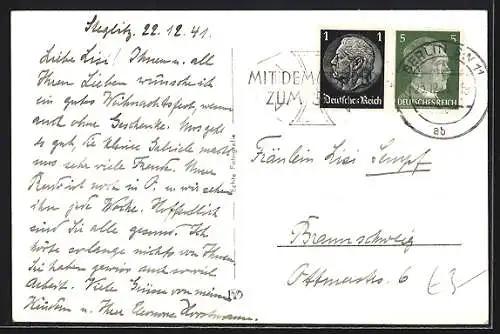 Steglitz, 22.12.41.
Liebe Lisi! Ihnen u. all
Ihren Lieben wünsche ich
ein gutes Weihnachtsfest, wenn
auch ohne Geschenke. Uns geht
es gut, die kleine Gabriele macht
uns sehr viele Freude. Unser
noch in P. u wir sehen
ihn jede Woche. Hoffentlich
sind Sie alle gesund. Ich
hörte so lange nichts von Ihnen.
Sie haben gewiss auch so viel
Arbeit. Viele Grüsse von meinen
Kindern u. Ihrer Eleonore
Echte Fotografie
MIT DEM
ZUM
1 1
Deutsches Reich
5 5
DEUTSCHES REICH
BERLIN SW 11
ab
Fräulein Lisi Sempf
Braunschweig
Ottmerstr. 6
£3